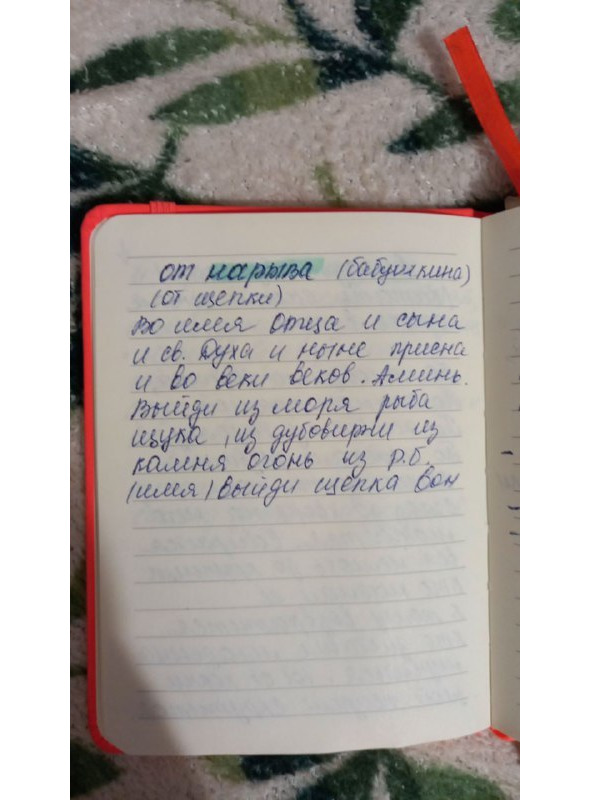 от нарыва (бабушкина)
(от щепки)
Во имя Отца и сына
и св. Духа и ныне присна
и во веки веков. Аминь.
Выйди из моря рыба
щука, из дубовирни из
камня огонь из р.б.
(имя) выйди щепка вон